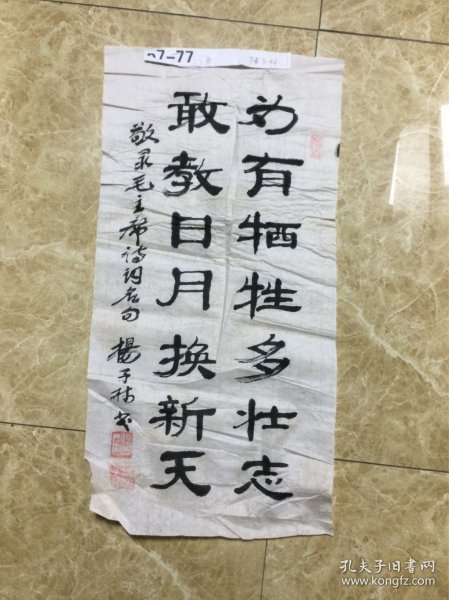 为有牺牲多壮志
敢教日月换新天
敬录毛主席诗词名句
杨子林书
7-77
孔夫子旧书网
www.kongfz.com